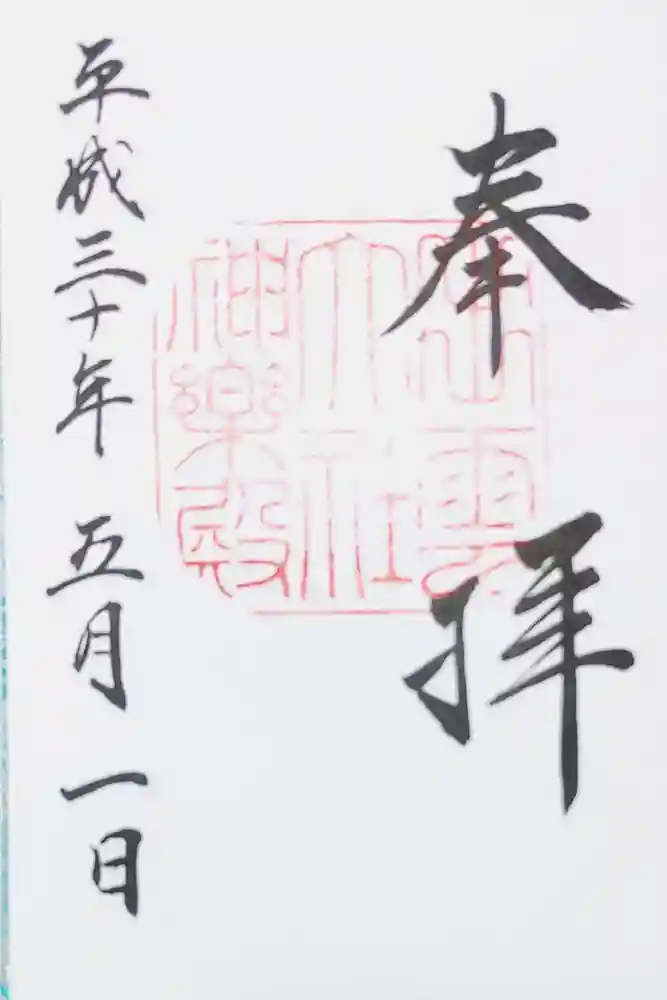 奉拝
出雲
大社
神楽殿
平成三十年 五月 一日